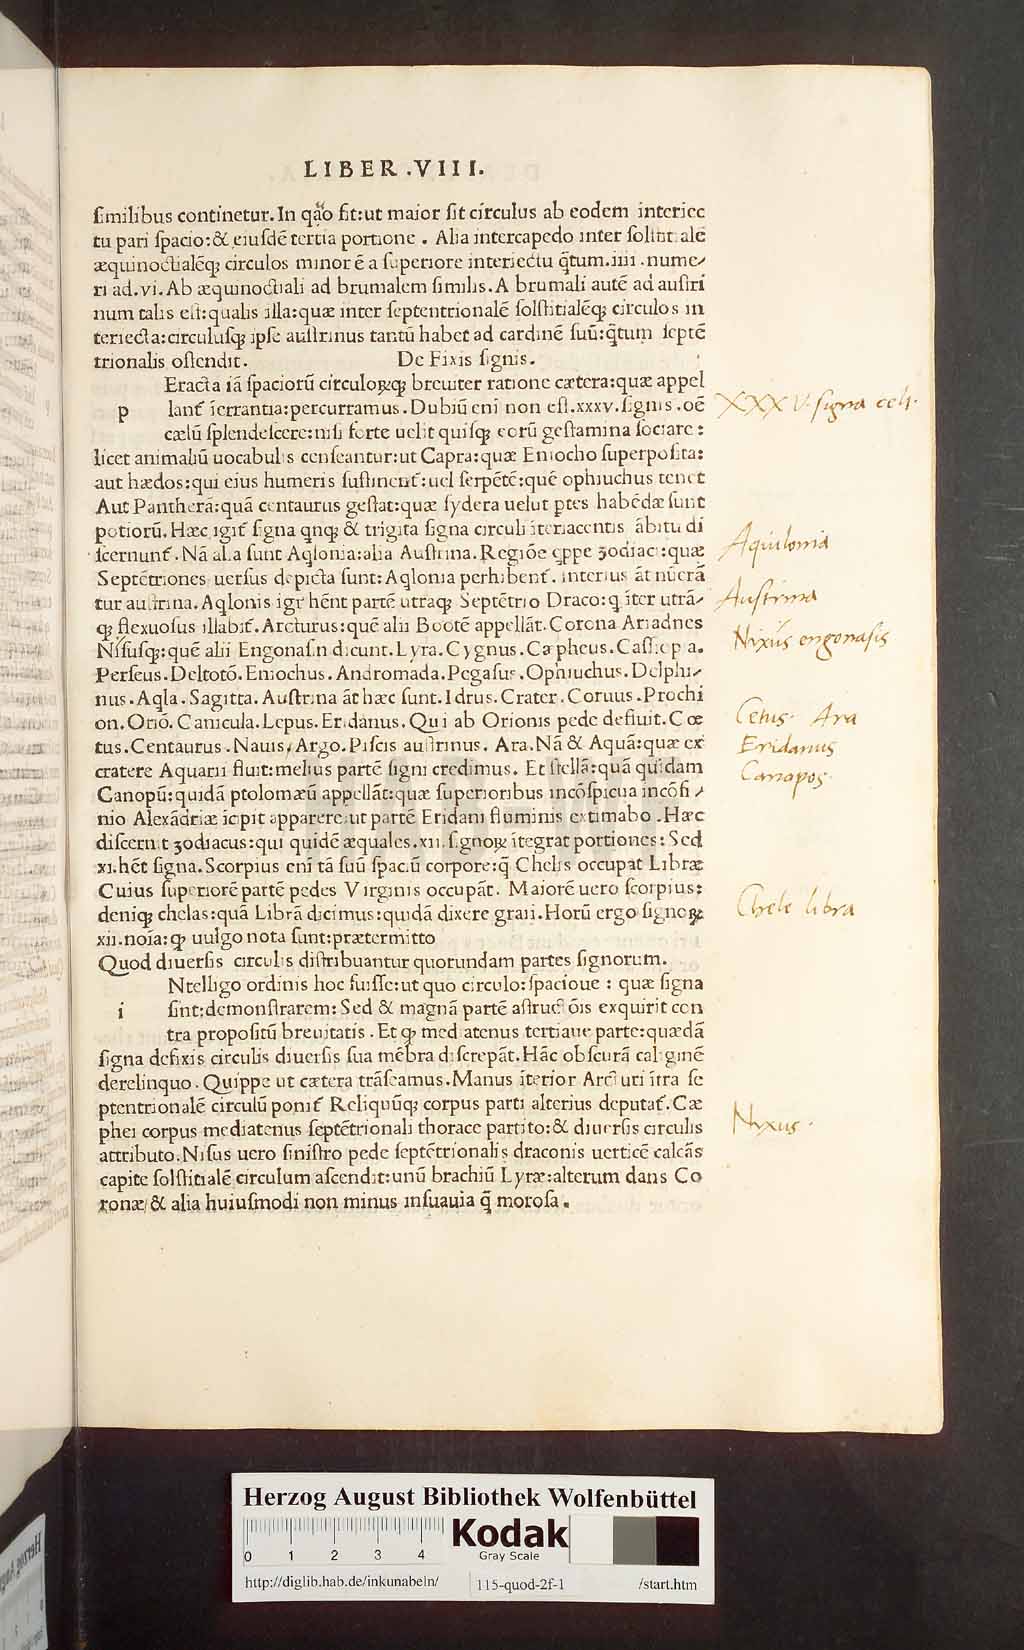 LIBER .VIII.
ſimilibus continetur. In quo fit:ut maior ſit circulus ab eodem interiec
tu pari ſpacio:& eiuſdē tertia portione . Alia intercapedo inter ſolſtitialē
æquinoctialēq; circulos minor ē a ſuperiore interiectu q̄tum.iiii.nume/
ri ad.vi. Ab æquinoctiali ad brumalem ſimilis. A brumali autē ad auſtri
num talis eſt:qualis illa:quæ inter ſeptentrionalē ſolſtitialēq; circulos in
teriecta:circuluſq; ipſe auſtrinus tantū habet ad cardinē ſuū:q̄tum ſeptē
trionalis oſtendit. De Fixis ſignis.
Eracta iā ſpaciorū circuloꝝq; breuiter ratione cætera:quæ appel
p lant᷑ īerrantia:percurramus. Dubiū eni non eſt.xxxv.ſignis.oē
cælū ſplendeſcere:niſi forte uelit quiſq; eorū geſtamina ſociare:
licet animaliū uocabulis cenſeantur:ut Capra:quæ Eniocho ſuperpoſita:
aut hædos:qui eius humeris ſuſtinent᷑:uel ſerpētē:quē ophiuchus tenet
Aut Pantherā:quā centaurus geſtat:quæ ſydera uelut ptes habēdæ ſunt
potiorū. Hæc igit᷑ ſigna qnq; & trigīta ſigna circuli īteriacentis ābitu di
ſcernunt᷑. Nā alia ſunt Aqlonia:alia Auſtrina. Regiōe qppe zodiaci:quæ
Septētriones uerſus depicta ſunt: Aqlonia perhibent᷑. interius āt nūerā
tur auſtrina. Aqlonis igr hēnt partē utraq; Septētrio Draco: q īter utrā/
q; flexuoſus illabit᷑. Arcturus:quē alii Bootē appellāt. Corona Ariadnes
Niſuſq;:quē alii Engonaſin dicunt. Lyra. Cygnus. Cæpheus. Caſſiepia.
Perſeus. Deltotō. Eniochus. Andromada. Pegaſus. Ophiuchus. Delphi/
nus. Aqla. Sagitta. Auſtrina āt hæc ſunt. Idrus. Crater. Coruus. Prochi
on. Oriō. Canicula. Lepus. Eridanus. Qui ab Orionis pede defluit. Cœ
tus. Centaurus. Nauis, Argo. Piſcis auſtrinus. Ara. Nā & Aquā:quæ ex
cratere Aquarii fluit:melius partē ſigni credimus. Et ſtellā:quā quidam
Canopū:quidā ptolomæū appellāt:quæ ſuperioribus incōſpicua incōfi/
nio Alexādriæ īcipit apparere:ut partē Eridani fluminis extimabo. Hæc
diſcernit zodiacus:qui quidē æquales.xii.ſignoꝝ ītegrat portiones: Sed
xi.hēt ſigna. Scorpius eni tā ſuū ſpaciū corpore:q̄ Chelis occupat Libræ
Cuius ſuperiorē partē pedes Virginis occupāt. Maiorē uero ſcorpius:
deniq; chelas:quā Librā dicimus:quidā dixere graii. Horū ergo ſignoꝝ
xii.noīa:q; uulgo nota ſunt:prætermitto
Quod diuerſis circulis diſtribuantur quorundam partes ſignorum.
Ntelligo ordinis hoc fuiſſe:ut quo circulo:ſpacioue : quæ ſigna
i ſint:demonſtrarem: Sed & magnā partē aſtruct̄ōis exquirit con
tra propoſitū breuitatis. Et q; mediatenus tertiaue parte:quædā
ſigna defixis circulis diuerſis ſua mēbra diſcrepāt. Hāc obſcurā caliginē
derelinquo. Quippe ut cætera trāſeamus. Manus īterior Arcturi ītra ſe
ptentrionalē circulū ponit᷑ Reliquūq; corpus parti alterius deputat᷑. Cæ
phei corpus mediatenus ſeptētrionali thorace partito:& diuerſis circulis
attributo. Niſus uero ſiniſtro pede ſeptētrionalis draconis uerticē calcās
capite ſolſtitialē circulum aſcendit:unū brachiū Lyræ:alterum dans Co
ronæ/ & alia huiuſmodi non minus inſuauia q̄ moroſa.
XXXV. signa celi.
Aquilonia
Austrina
Nixus engonasis
Cetus. Ara
Eridanus
Canapos.
Chele libra
Nixus.
Herzog August Bibliothek Wolfenbüttel
Kodak
Gray Scale
0 1 2 3 4
http://diglib.hab.de/inkunabeln/ 115-quod-2f-1 /start.htm